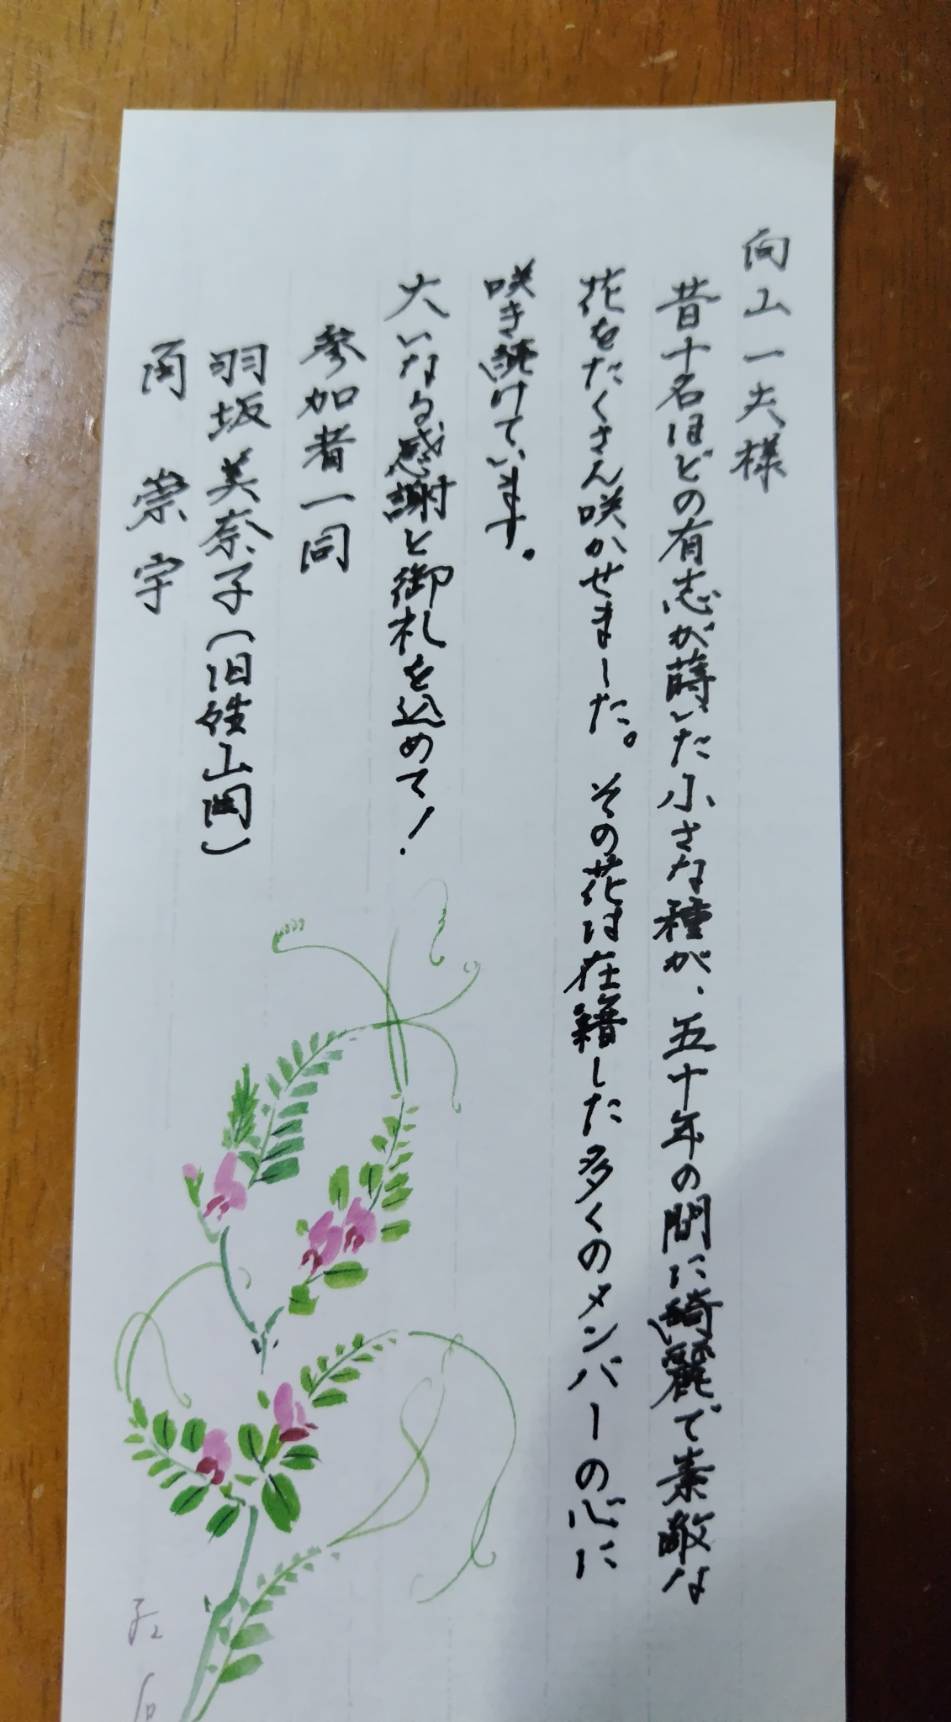 向山一夫様
昔十名ほどの有志が蒔いた小さな種が、五十年の間に綺麗で素敵な
花をたくさん咲かせました。その花は在籍した多くのメンバーの心に
咲き続けています。
大いなる感謝と御札を込めて!
参加者一同
羽坂美奈子(旧姓山岡)
角 崇宇